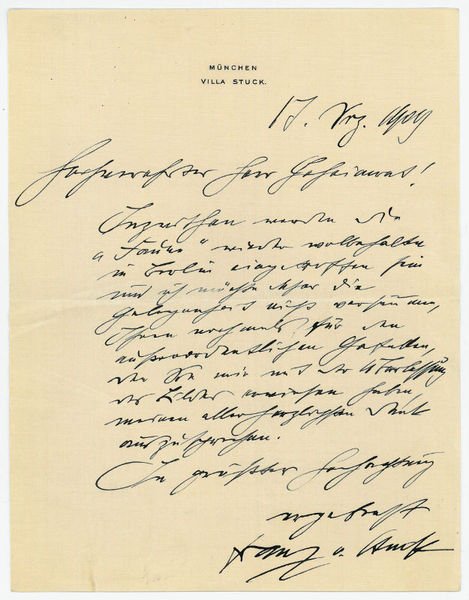 MÜNCHEN
VILLA STUCK.
17. Dez. 1909
Hochverehrter Herr Geheimrat!
Inzwischen werden die
"Faune" wieder wolbehalten
in Berlin eingetroffen sein
und ich möchte daher die
Gelegenheit nicht versäumen,
Ihnen nochmals für den
außerordentlichen Gefallen,
den Sie mir mit der Überlassung
des Bildes erwiesen haben,
meinen allerherzlichsten Dank
auszusprechen.
In größter Hochachtung
ergebenst
Franz v. Stuck